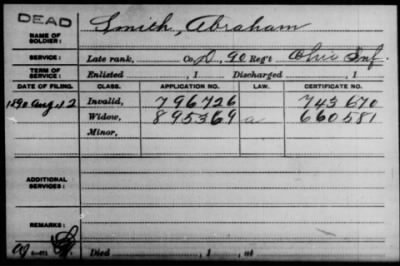 DEAD
NAME OF SOLDIER: Smith, Abraham
SERVICE: Late rank, Co. D, 90 Reg't Ohio Inf.
TERM OF SERVICE: Enlisted , 1 Discharged , 1
DATE OF FILING. CLASS. APPLICATION NO. LAW. CERTIFICATE NO.
1890 Aug. 12 Invalid, 796726 743670
Widow, 895369 a 660581
Minor,
ADDITIONAL SERVICES:
REMARKS:
Died , 1 , at